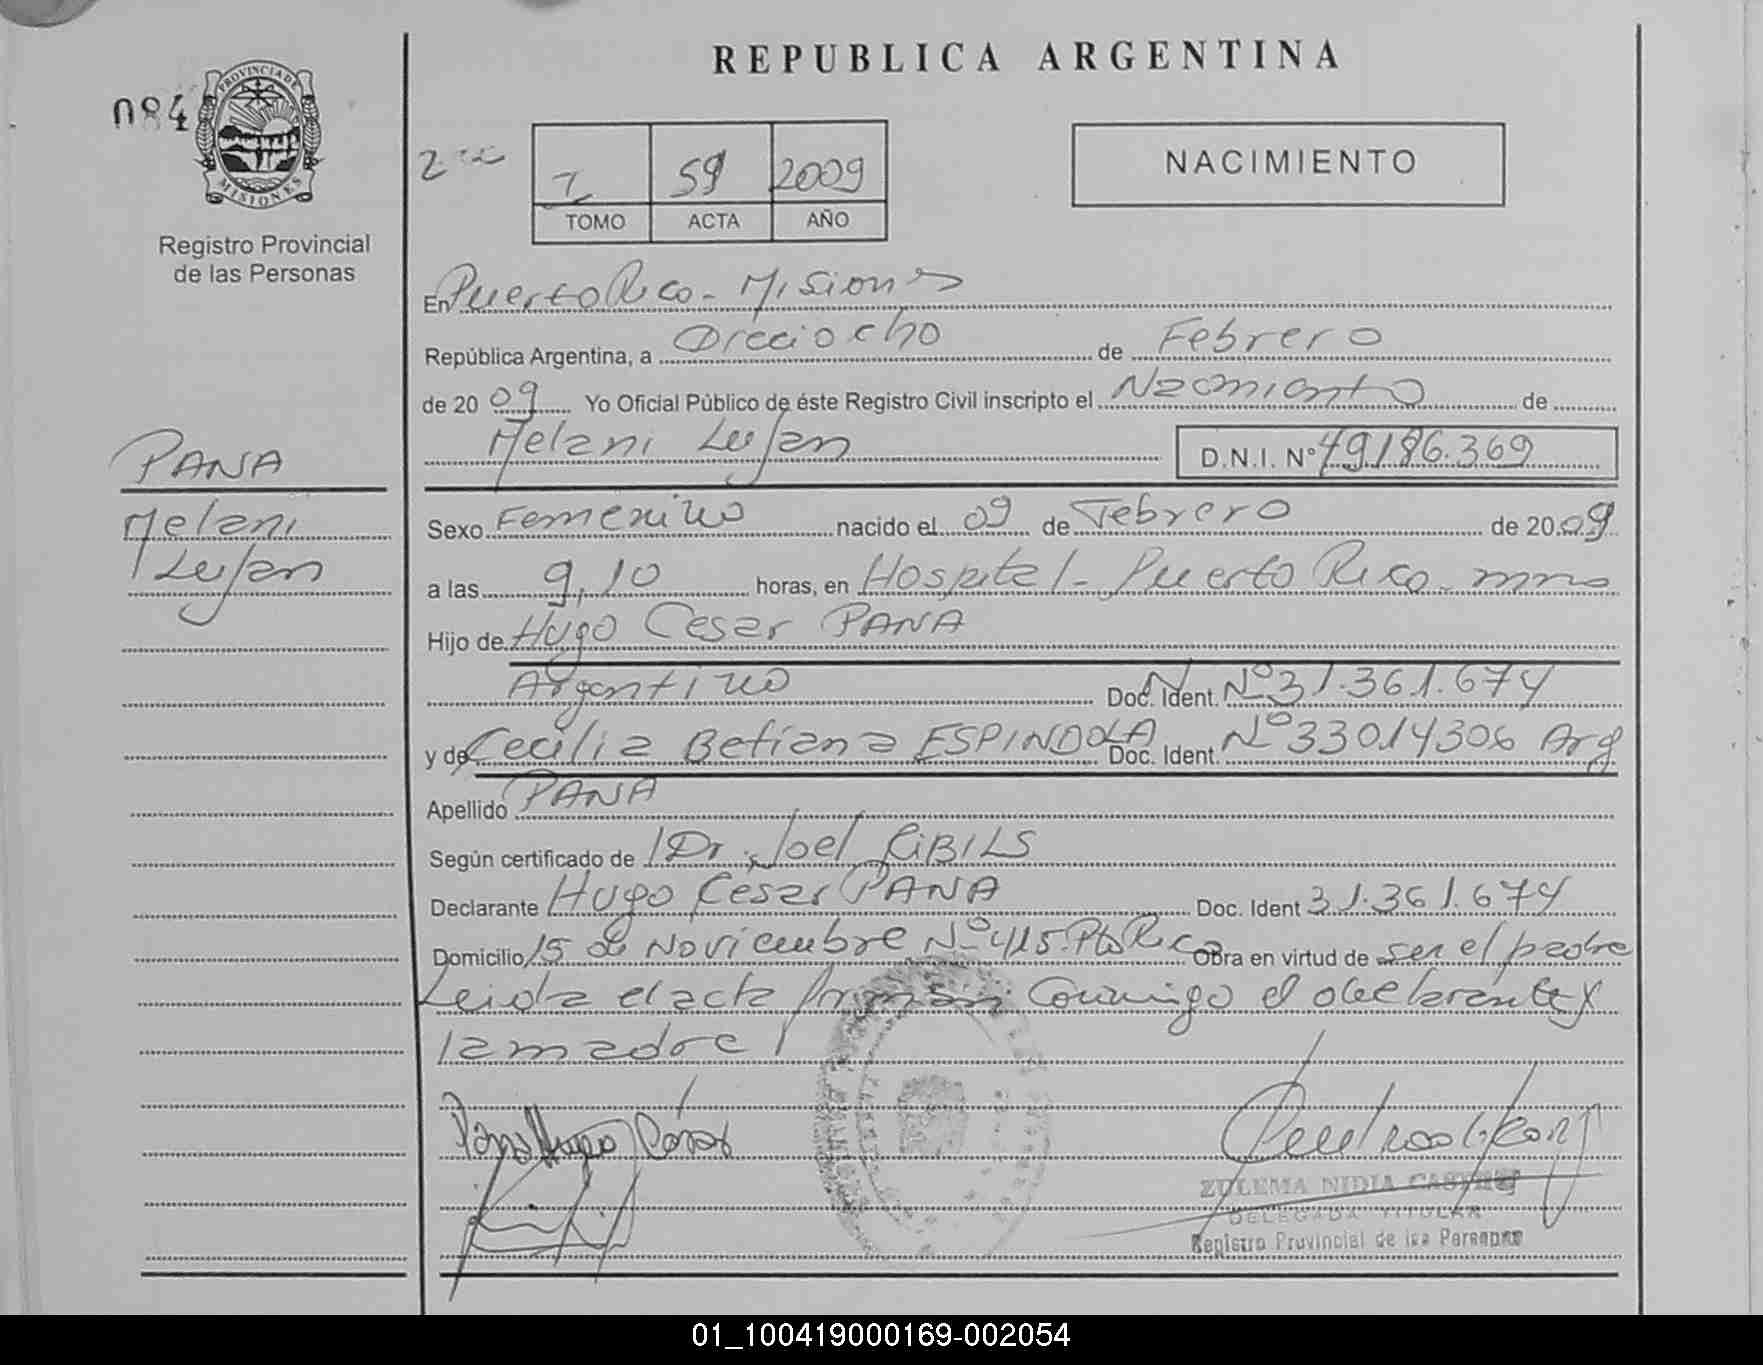 REPUBLICA ARGENTINA
084
PROVINCIA DE
MISIONES
Registro Provincial
de las Personas
I 59 2009
TOMO ACTA AÑO
NACIMIENTO
En Puerto Rico - Misiones
República Argentina, a Dieciocho de Febrero
de 20 09 Yo Oficial Público de éste Registro Civil inscripto el Nacimiento de
Melani Lujan D.N.I. Nº 49186.369
PANA
Melani
Lujan
Sexo Femenino nacido el 09 de Febrero de 20 09
a las 9,10 horas, en Hospital - Puerto Rico - mnes
Hijo de Hugo Cesar PANA
Argentino Doc. Ident. Nº 31.361.674
y de Cecilia Betiana ESPINDOLA Doc. Ident. Nº 33014306 Arg
Apellido PANA
Según certificado de Dr. Joel RIBILS
Declarante Hugo Cesar PANA Doc. Ident 31.361.674
Domicilio 15 de Noviembre Nº 415 Pto Rico Obra en virtud de ser el padre
Leida el acta firman Conmigo el declarante y
la madre
Pana Hugo Cesar
ZULEMA NIDIA CASTRO
DELEGADA TITULAR
Registro Provincial de las Personas
01_100419000169-002054